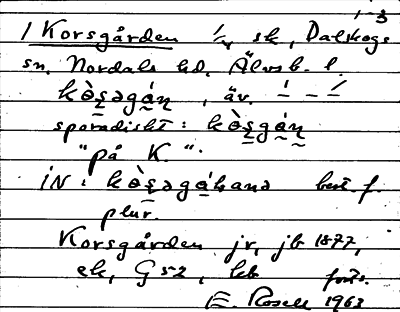 1-3
1 Korsgården 1/4 sk, Dalskogs
sn. Nordals hd. Älvsb. l.
kòs̬əgán̬, äv. –́ – –́
sporadiskt: kòs̬gán̬
"på K.".
iN: kòs̬əgáɦanə best. f.
plur.
Korsgården jr, jb 1877,
ek, G52, kb forts.
E. Rosell 1963